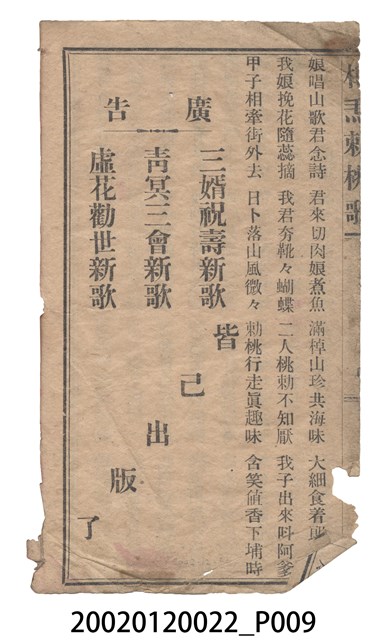 桃歌
娘唱山歌君念詩　君來切肉娘煮魚　滿棹山珍共海味　大細食着
我娘挽花隨蕊摘　我君夯靴々蝴蝶　二人桃勅不知厭　我子出來呌阿爹
甲子相牽街外去　日卜落山風微々　勅桃行走眞趣味　含笑香下埔時
廣告
三婿祝壽新歌
靑冥三會新歌
虛花勸世新歌
皆己出版了
20020120022_P009